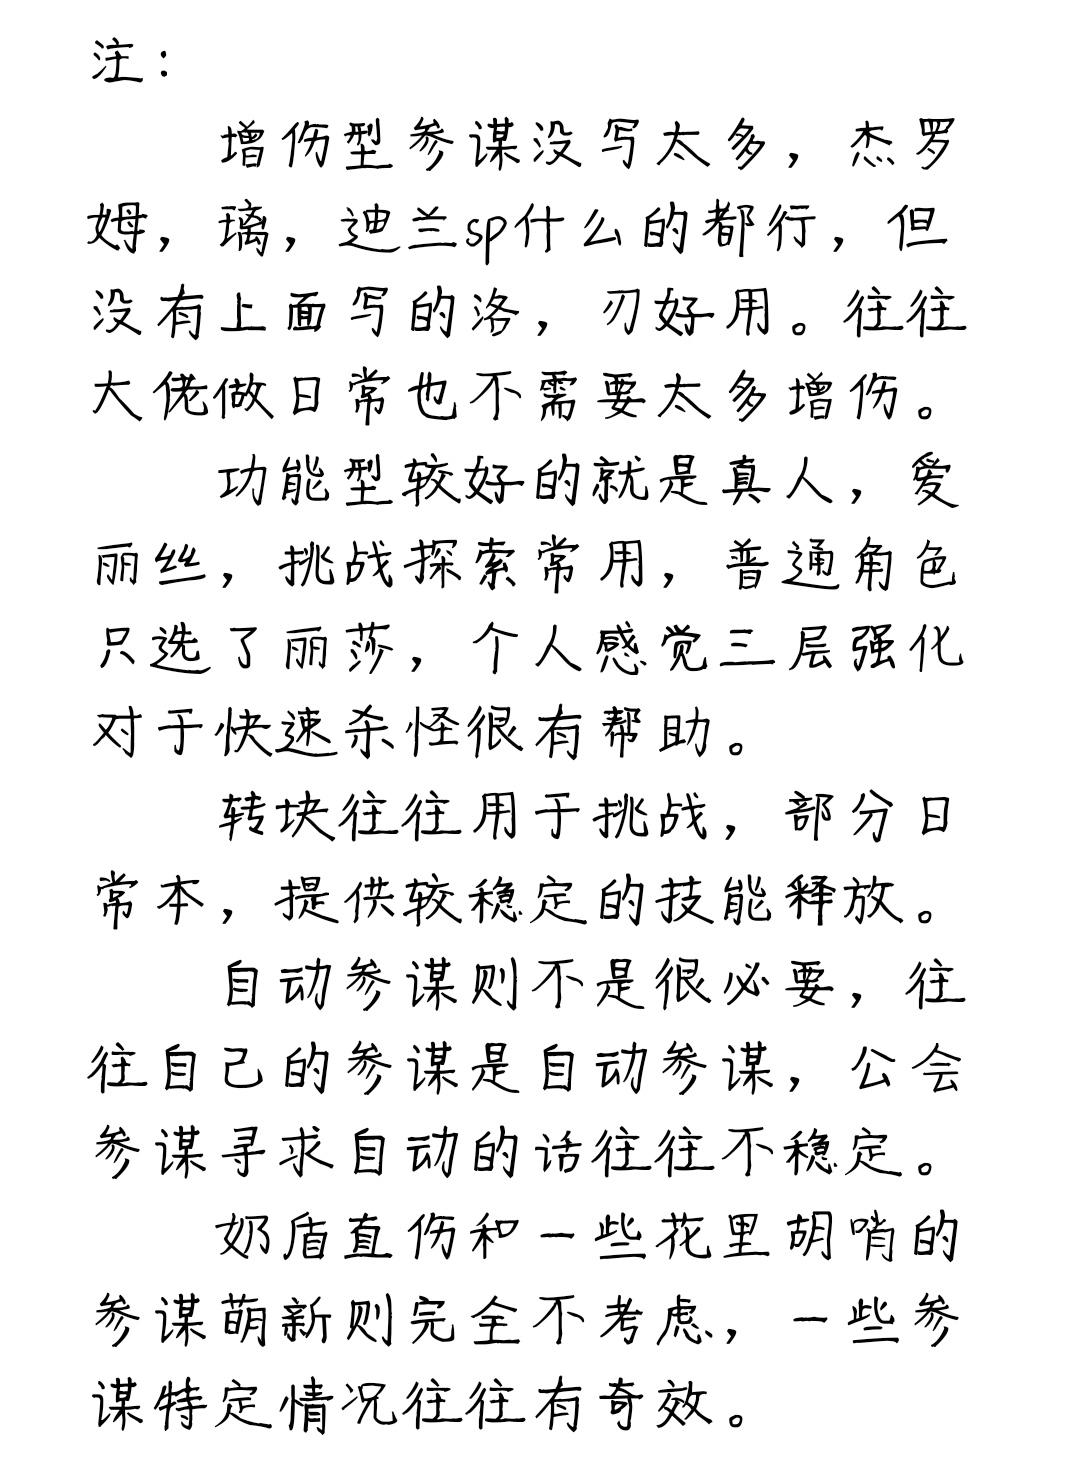 注：
增伤型参谋没写太多，杰罗
姆，璃，迪兰sp什么的都行，但
没有上面写的洛，刃好用。往往
大佬做日常也不需要太多增伤。
功能型较好的就是真人，爱
丽丝，挑战探索常用，普通角色
只选了丽莎，个人感觉三层强化
对于快速杀怪很有帮助。
转块往往用于挑战，部分日
常本，提供较稳定的技能释放。
自动参谋则不是很必要，往
往自己的参谋是自动参谋，公会
参谋寻求自动的话往往不稳定。
奶盾直伤和一些花里胡哨的
参谋萌新则完全不考虑，一些参
谋特定情况往往有奇效。